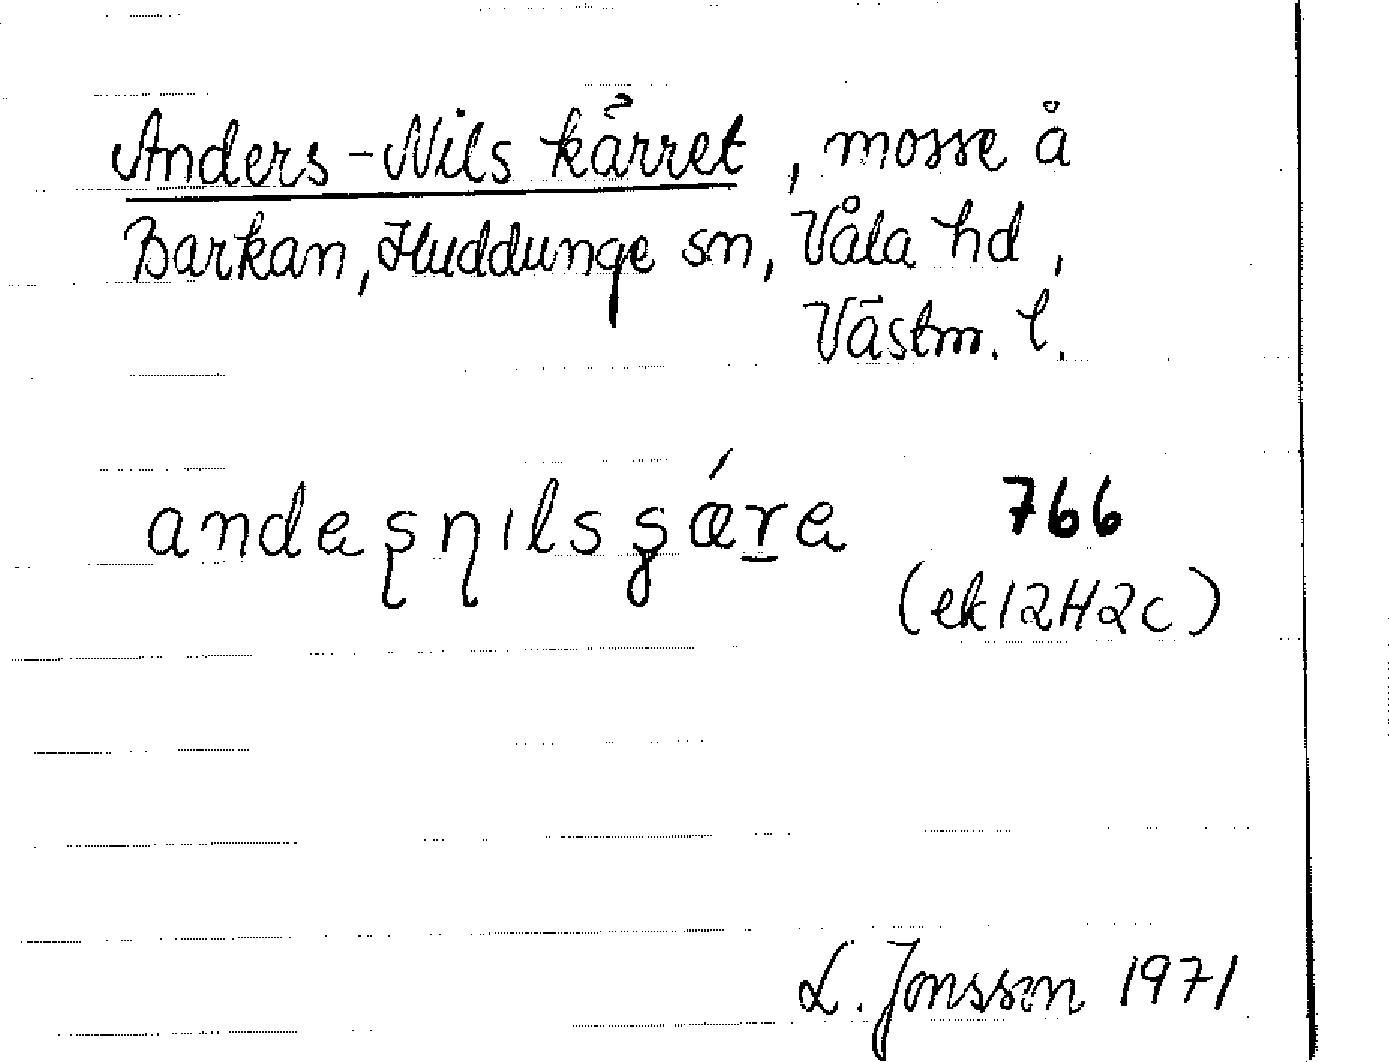 Anders-Nils kärret, mosse å
Barkan, Huddunge sn, Våla hd,
Västm. l.
766
(ek 12H2c)
L. Jonsson 1971